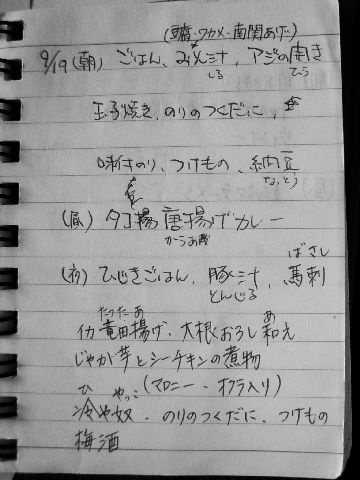 (豆腐・ワカメ・南関あげ)
9/19(朝) ごはん、みそ汁、アジの開き
しる ひらき
玉子焼き、のりのつくだに、
味付のり、つけもの、納豆
なっとう
(昼) 夕顔 唐揚げカレー
からあげ
ばさし
(夜) ひじきごはん、豚汁、馬刺
とんじる
たつたあ あ
イカ竜田揚げ、大根おろし和え
じゃが芋とシーチキンの煮物
ひ やっこ (マロニー・オクラ入り)
冷や奴、のりのつくだに、つけもの
梅酒